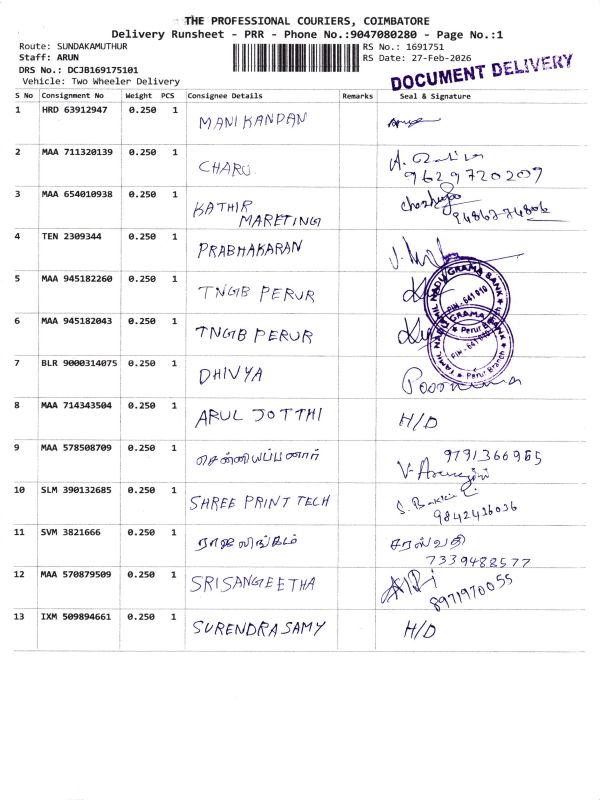 THE PROFESSIONAL COURIERS, COIMBATORE
Delivery Runsheet - PRR - Phone No.:9047080280 - Page No.:1
Route: SUNDAKAMUTHUR
RS No.: 1691751
Staff: ARUN
RS Date: 27-Feb-2026
DRS No.: DCJB169175101
Vehicle: Two Wheeler Delivery
DOCUMENT DELIVERY
S No Consignment No Weight PCS Consignee Details Remarks Seal & Signature
1 HRD 63912947 0.250 1 MANIKANDAN
2 MAA 711320139 0.250 1 CHARU
9629720209
3 MAA 654010938 0.250 1 KATHIR
MARETING
4 TEN 2309344 0.250 1 PRABHAKARAN
5 MAA 945182260 0.250 1 TNGB PERUR
TAMIL NADU GRAMA BANK
PIN - 641 010
Perur Branch
6 MAA 945182043 0.250 1 TNGB PERUR
TAMIL NADU GRAMA BANK
PIN - 641 010
Perur Branch
7 BLR 9000314075 0.250 1 DHIVYA
8 MAA 714343504 0.250 1 ARUL JOTTHI H/D
9 MAA 578508709 0.250 1 சென்னியப்பனார் 9791366965
10 SLM 390132685 0.250 1 SHREE PRINT TECH
9842416036
11 SVM 3821666 0.250 1 ராஜலிங்கம் சரஸ்வதி
7339488577
12 MAA 570879509 0.250 1 SRISANGEETHA
8971970055
13 IXM 509894661 0.250 1 SURENDRASAMY H/D